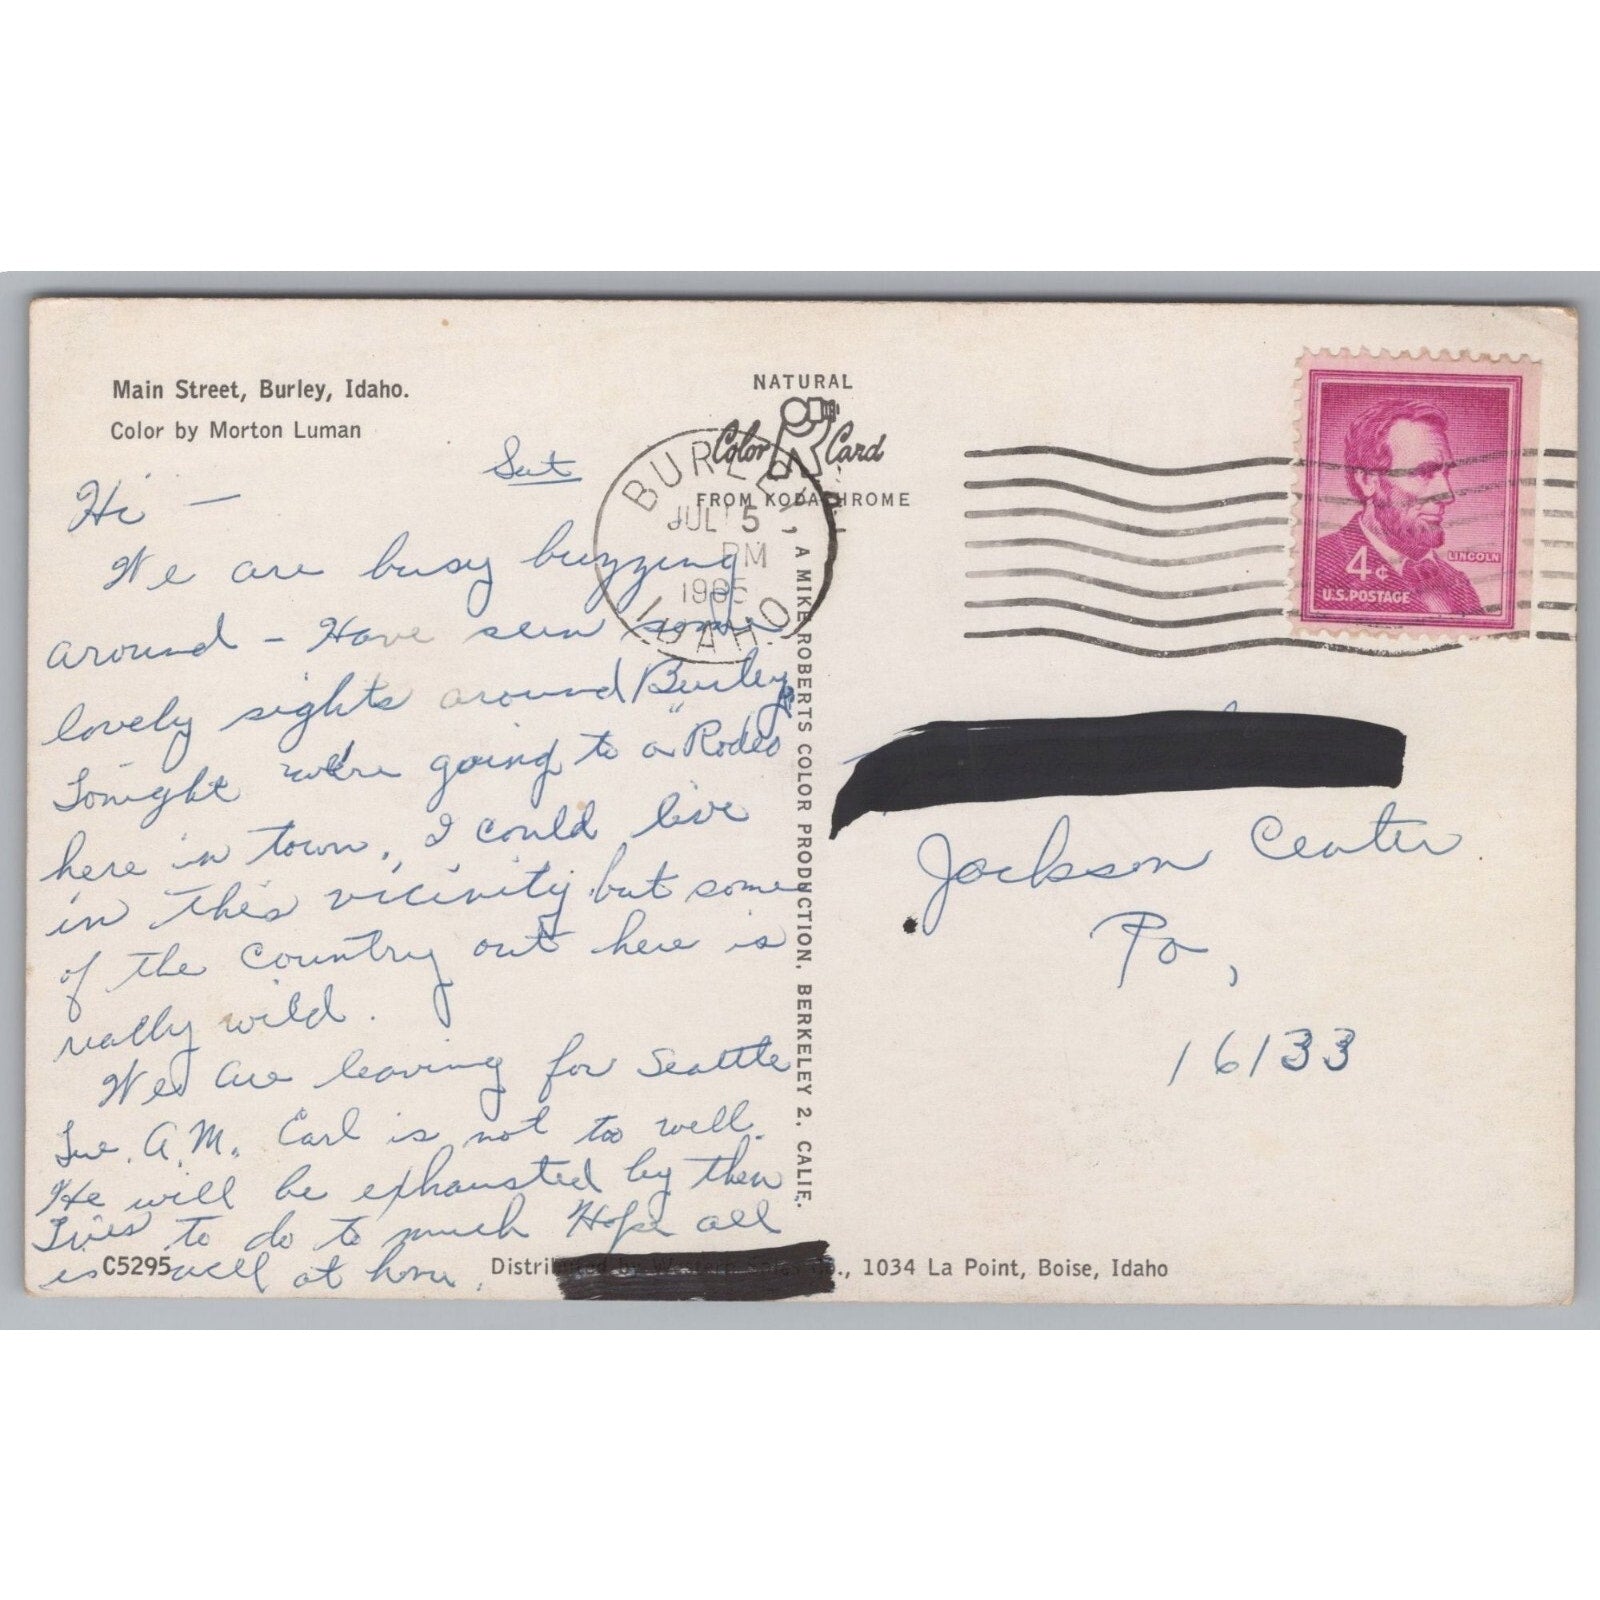 Main Street, Burley, Idaho.
Color by Morton Luman
Sat
Hi —
We are busy buzzing
around - Have seen some
lovely sights around Burley.
Tonight we're going to a "Rodeo
here in town," I could live
in this vicinity but some
of the country out here is
really wild.
We are leaving for Seattle
Tue. A.M. Earl is not too well.
He will be exhausted by then
Tries to do to much Hope all
is well at home.
C5295
Distributed by Western Sales Co., 1034 La Point, Boise, Idaho
NATURAL
Color Card
FROM KODACHROME
A MIKE ROBERTS COLOR PRODUCTION, BERKELEY 2, CALIF.
BURLEY,
JUL 5
PM
1965
IDAHO
4¢
LINCOLN
U.S. POSTAGE
Jackson Center
Pa,
16133